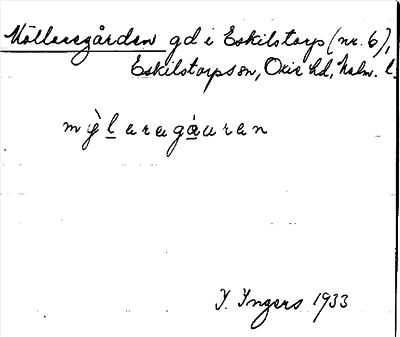 Möllaregården gd i Eskilstorp (nr. 6),
Eskilstorps sn, Oxie hd, Malm. l.
mỳlaragáuran
I. Ingers 1933